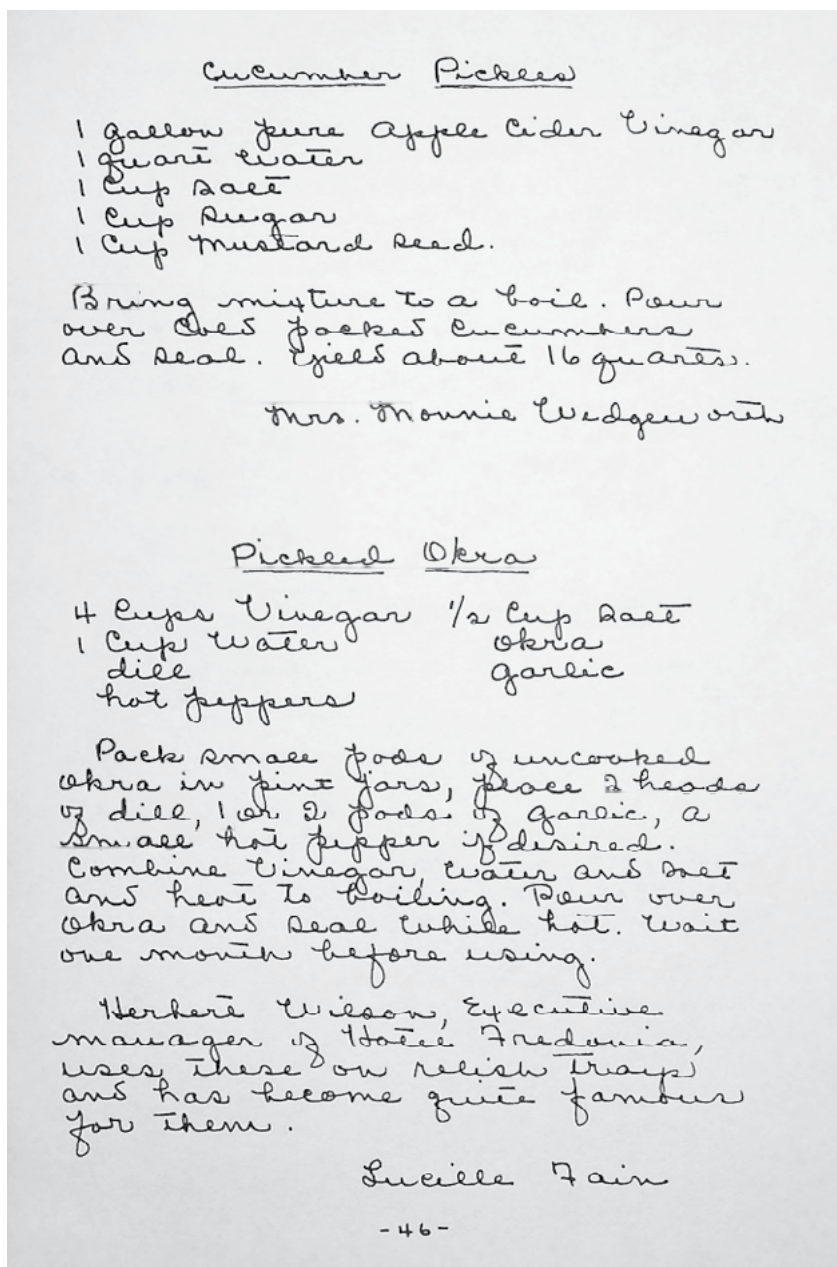 Cucumber Pickles
1 gallon pure Apple Cider Vinegar
1 quart Water
1 Cup Salt
1 Cup Sugar
1 Cup Mustard Seed.
Bring mixture to a boil. Pour
over Cold packed Cucumbers
and seal. Yield about 16 quarts.
Mrs. Monnie Wedgeworth
Pickled Okra
4 Cups Vinegar 1/2 Cup Salt
1 Cup Water okra
dill garlic
hot peppers
Pack small pods of uncooked
okra in pint jars, place 2 heads
of dill, 1 or 2 pods of garlic, a
small hot pepper if desired.
Combine Vinegar, Water and salt
and heat to boiling. Pour over
okra and seal while hot. Wait
one month before using.
Herbert Wilson, Executive
manager of Hotel Fredonia,
uses these on relish trays
and has become quite famous
for them.
Lucille Fain
-46-